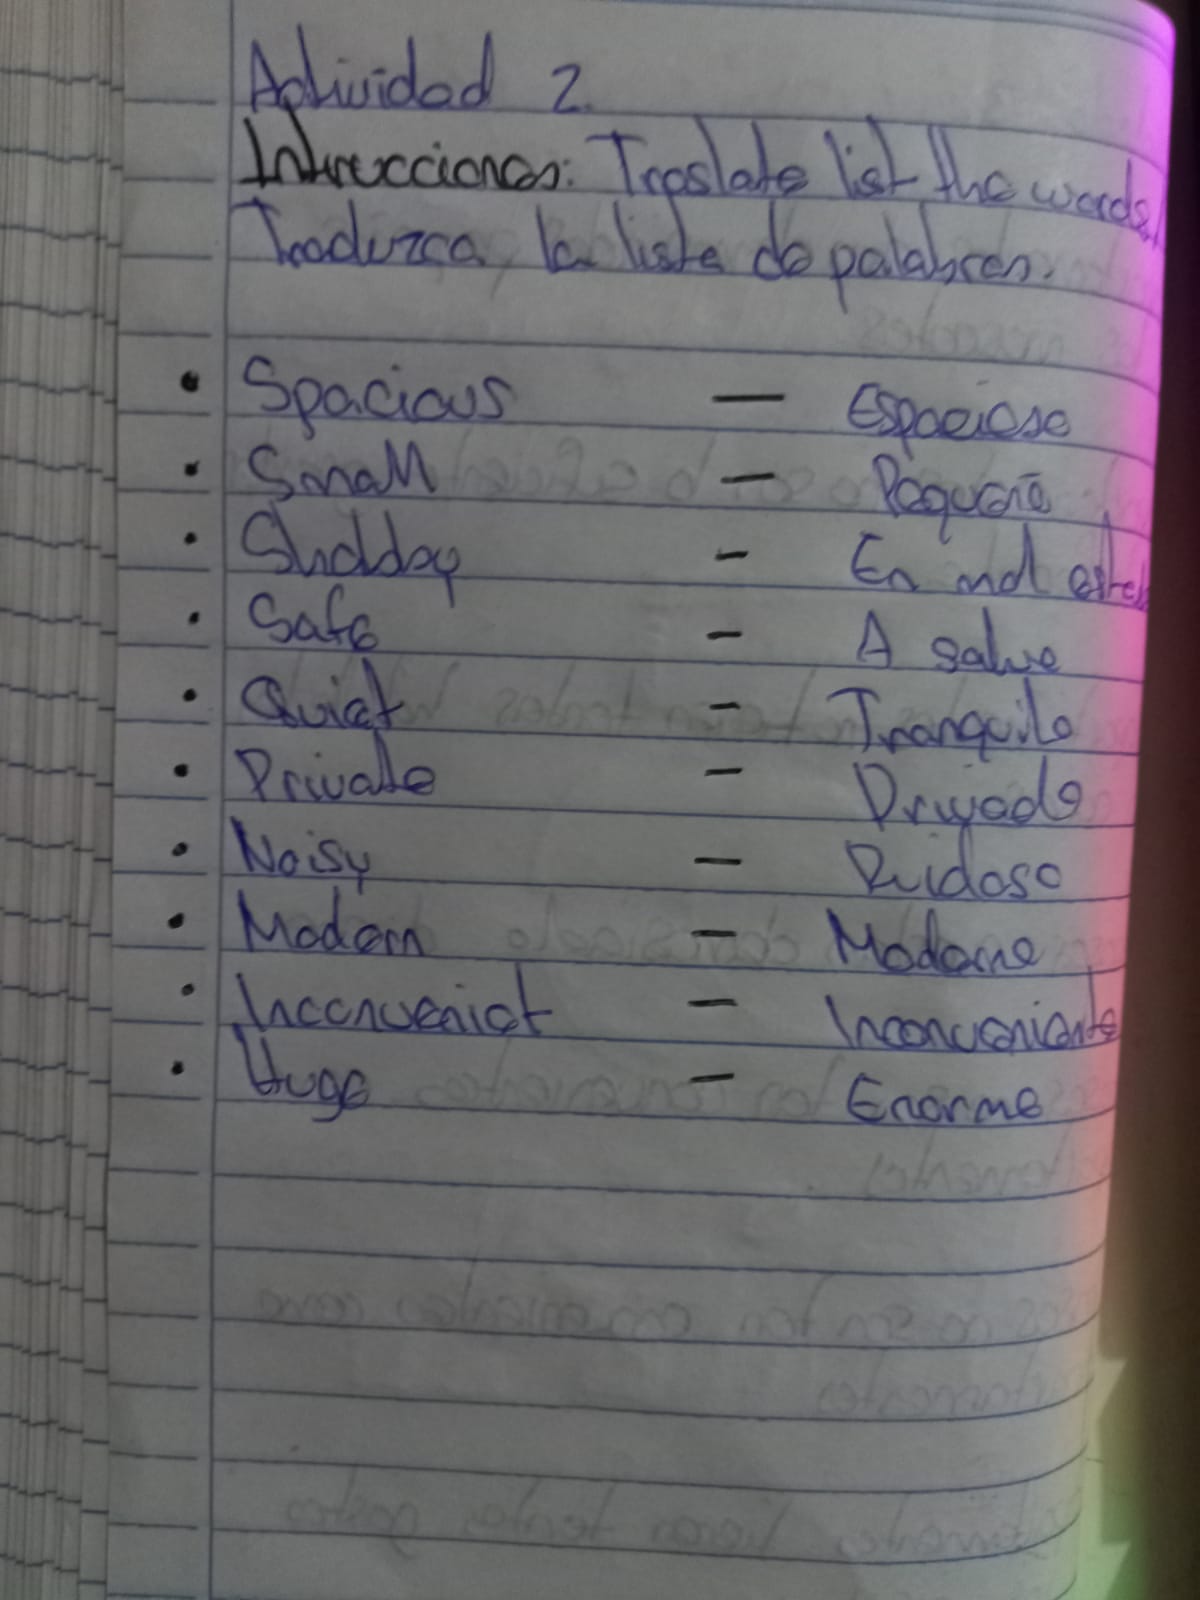 Actividad 2.
Intrucciones: Traslate list the words.
Traduzca la lista de palabras.
• Spacious — Espacioso
• Small — Pequeño
• Shadday — En mal estado
• Safe — A salvo
• Quiet — Tranquilo
• Private — Privado
• Noisy — Ruidoso
• Modern — Moderno
• Inconveniet — Inconveniente
• Huge — Enorme